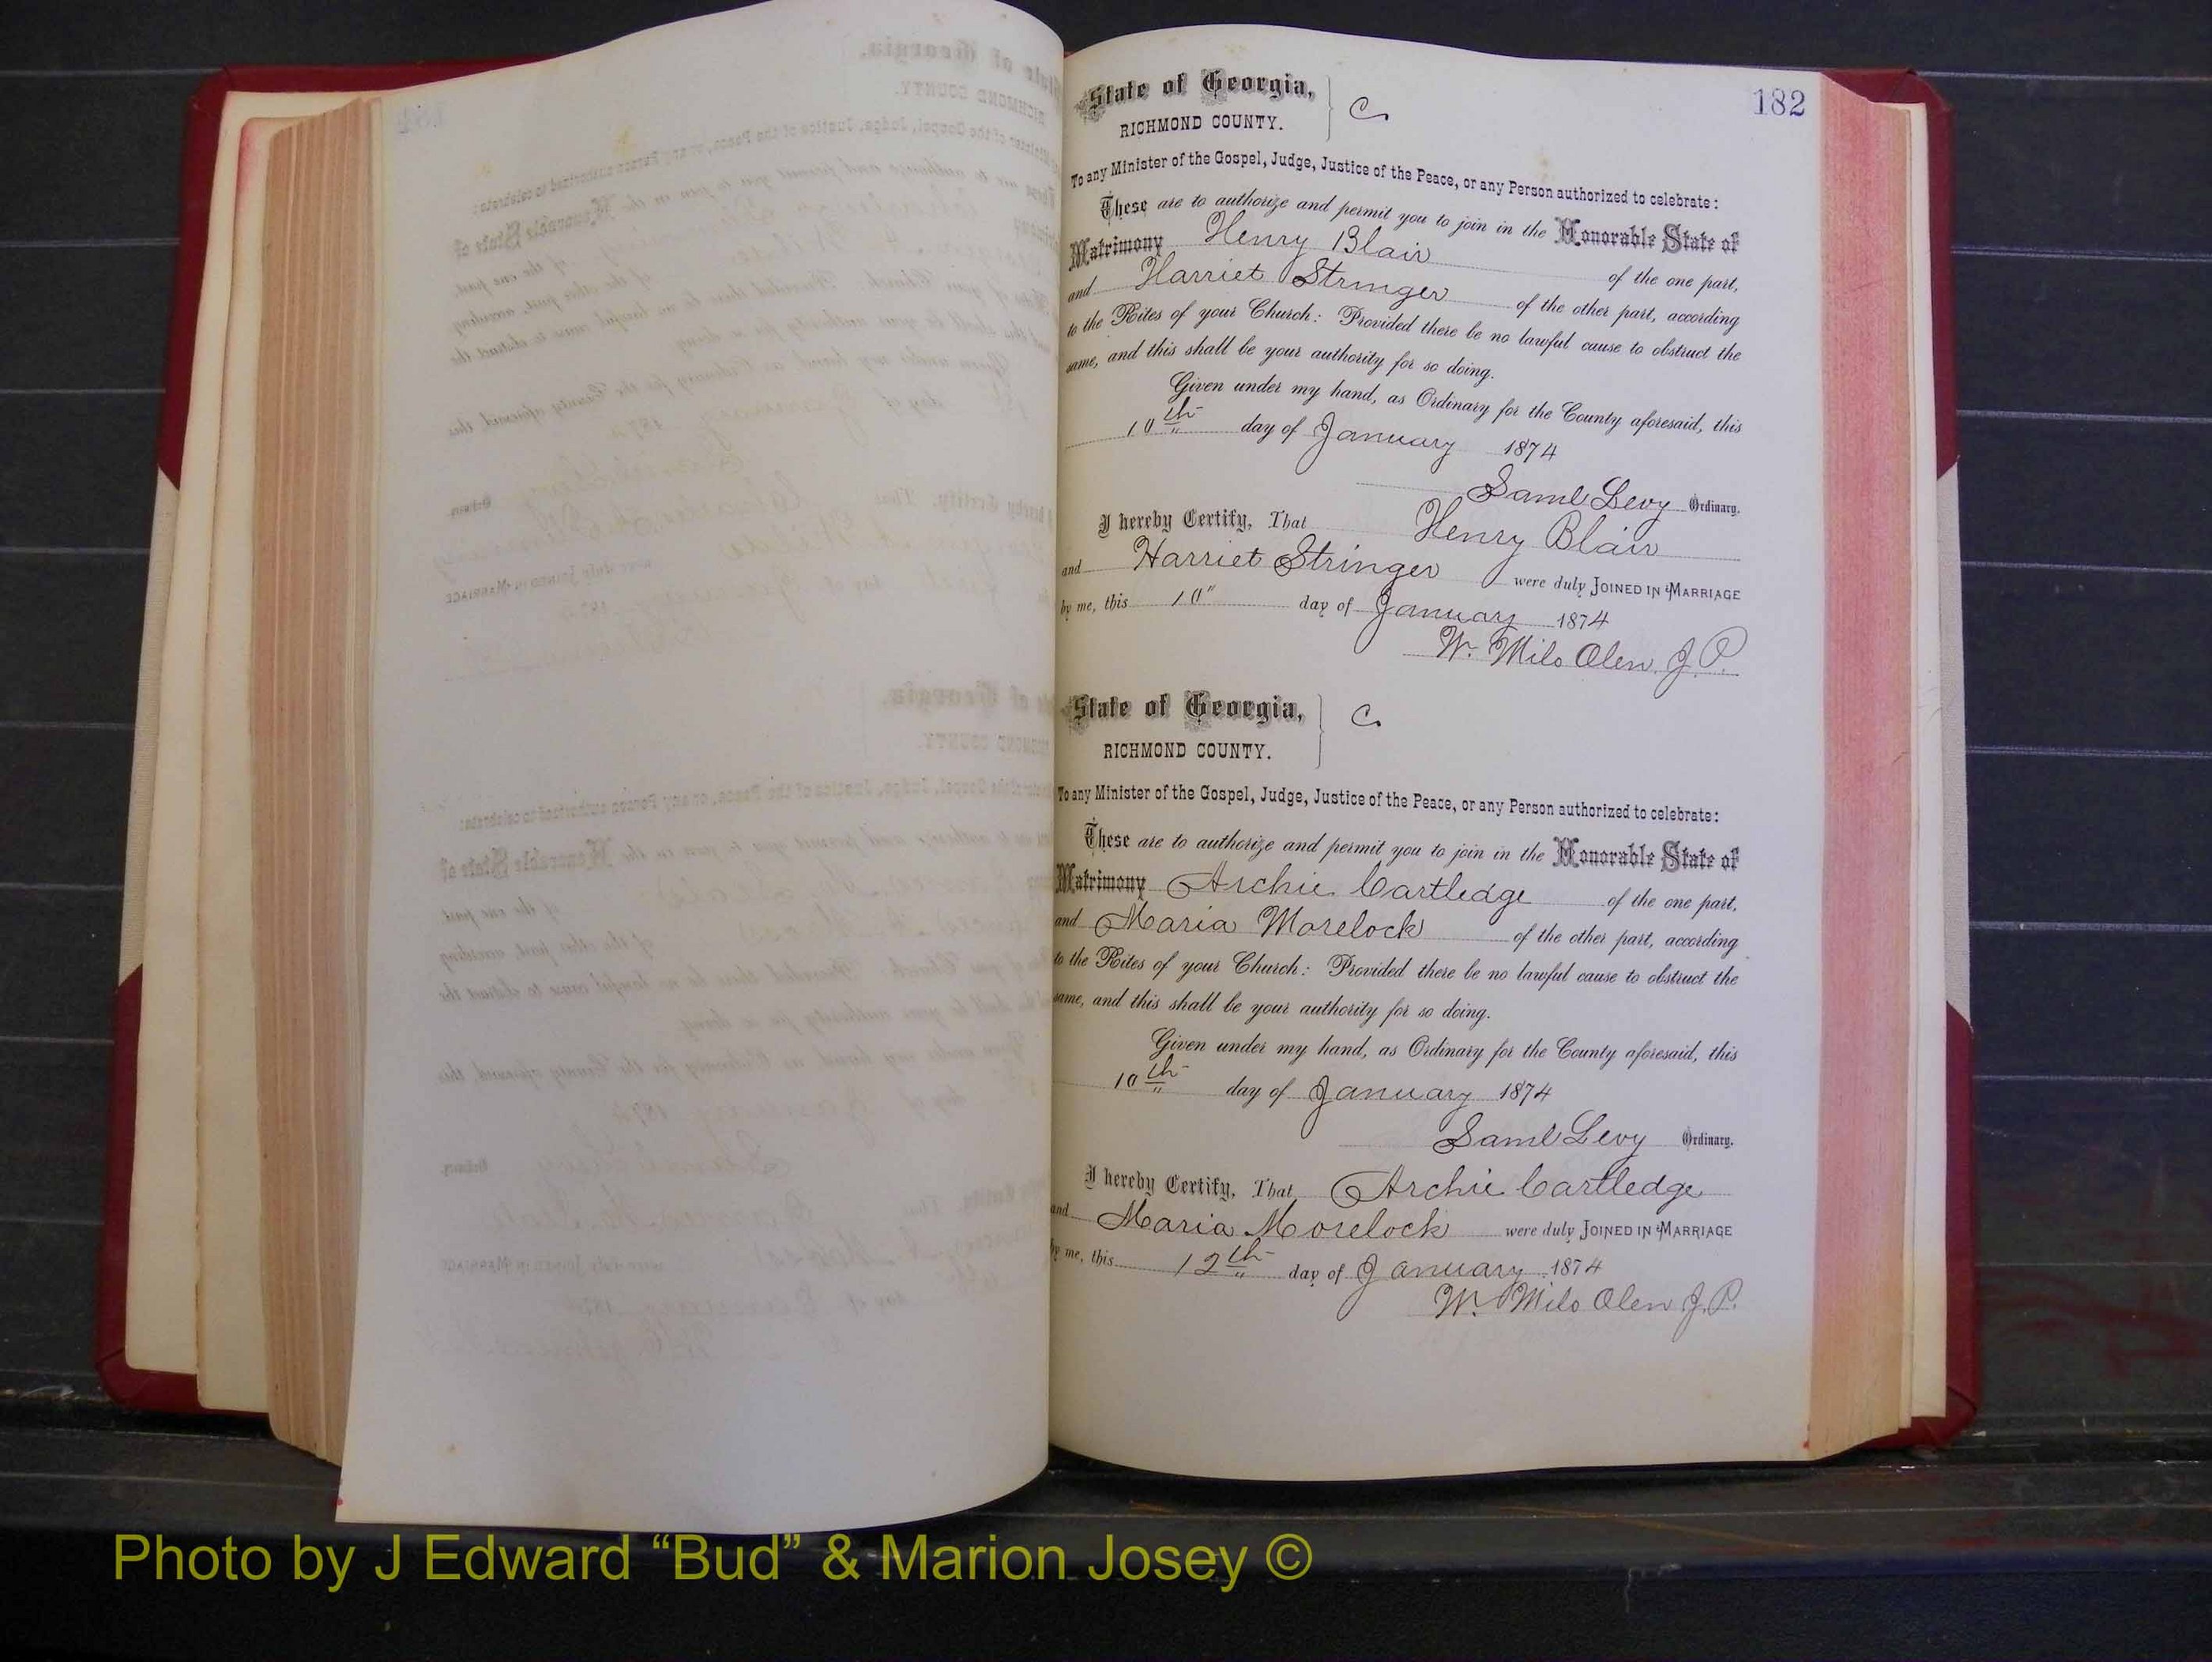 182
State of Georgia,
RICHMOND COUNTY. } C.
To any Minister of the Gospel, Judge, Justice of the Peace, or any Person authorized to celebrate:
These are to authorize and permit you to join in the Honorable State of
Matrimony Henry Blair of the one part,
and Harriet Stringer of the other part, according
to the Rites of your Church: Provided there be no lawful cause to obstruct the
same, and this shall be your authority for so doing.
Given under my hand, as Ordinary for the County aforesaid, this
10th day of January 1874
Saml Levy Ordinary.
I hereby Certify, That Henry Blair
and Harriet Stringer were duly JOINED IN MARRIAGE
by me, this 10" day of January 1874
W. Milo Olen J. P.
State of Georgia,
RICHMOND COUNTY. } C.
To any Minister of the Gospel, Judge, Justice of the Peace, or any Person authorized to celebrate:
These are to authorize and permit you to join in the Honorable State of
Matrimony Archie Cartledge of the one part,
and Maria Morelock of the other part, according
to the Rites of your Church: Provided there be no lawful cause to obstruct the
same, and this shall be your authority for so doing.
Given under my hand, as Ordinary for the County aforesaid, this
10th day of January 1874
Saml Levy Ordinary.
I hereby Certify, That Archie Cartledge
and Maria Morelock were duly JOINED IN MARRIAGE
by me, this 12th day of January 1874
W. Milo Olen J. P.
Photo by J Edward “Bud” & Marion Josey ©